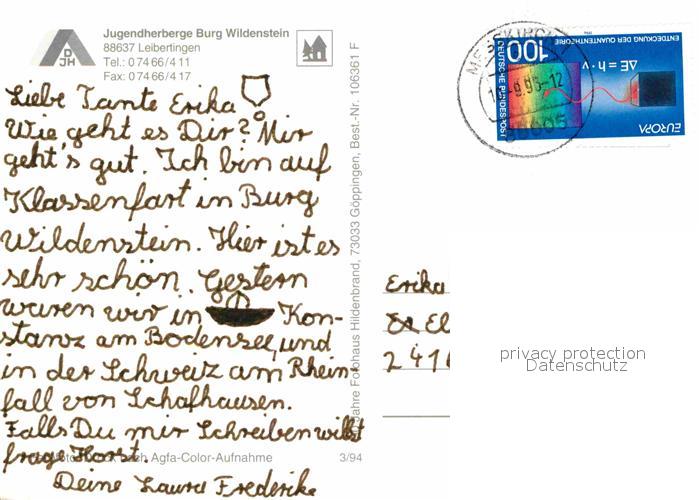 Jugendherberge Burg Wildenstein
88637 Leibertingen
Tel.: 0 74 66 / 4 11
Fax: 0 74 66 / 4 17
DJH
Liebe Tante Erika
Wie geht es Dir? Mir
geht's gut. Ich bin auf
Klassenfart in Burg
Wildenstein. Hier ist es
sehr schön. Gestern
waren wir in Kon-
stanz am Bodensee, und
in der Schweiz am Rhein-
fall von Schafhausen.
Falls Du mir Schreiben willst
frage Horst.
Deine Laura Frederike
Agfa-Color-Aufnahme
3/94
Fotohaus Hildenbrand, 73033 Göppingen, Best.-Nr. 106361 F
100
DEUTSCHE BUNDESPOST
ENTDECKUNG DER QUANTENTHEORIE
ΔE = h · ν
EUROPA
9.96-12
Erika
El
241
privacy protection
Datenschutz